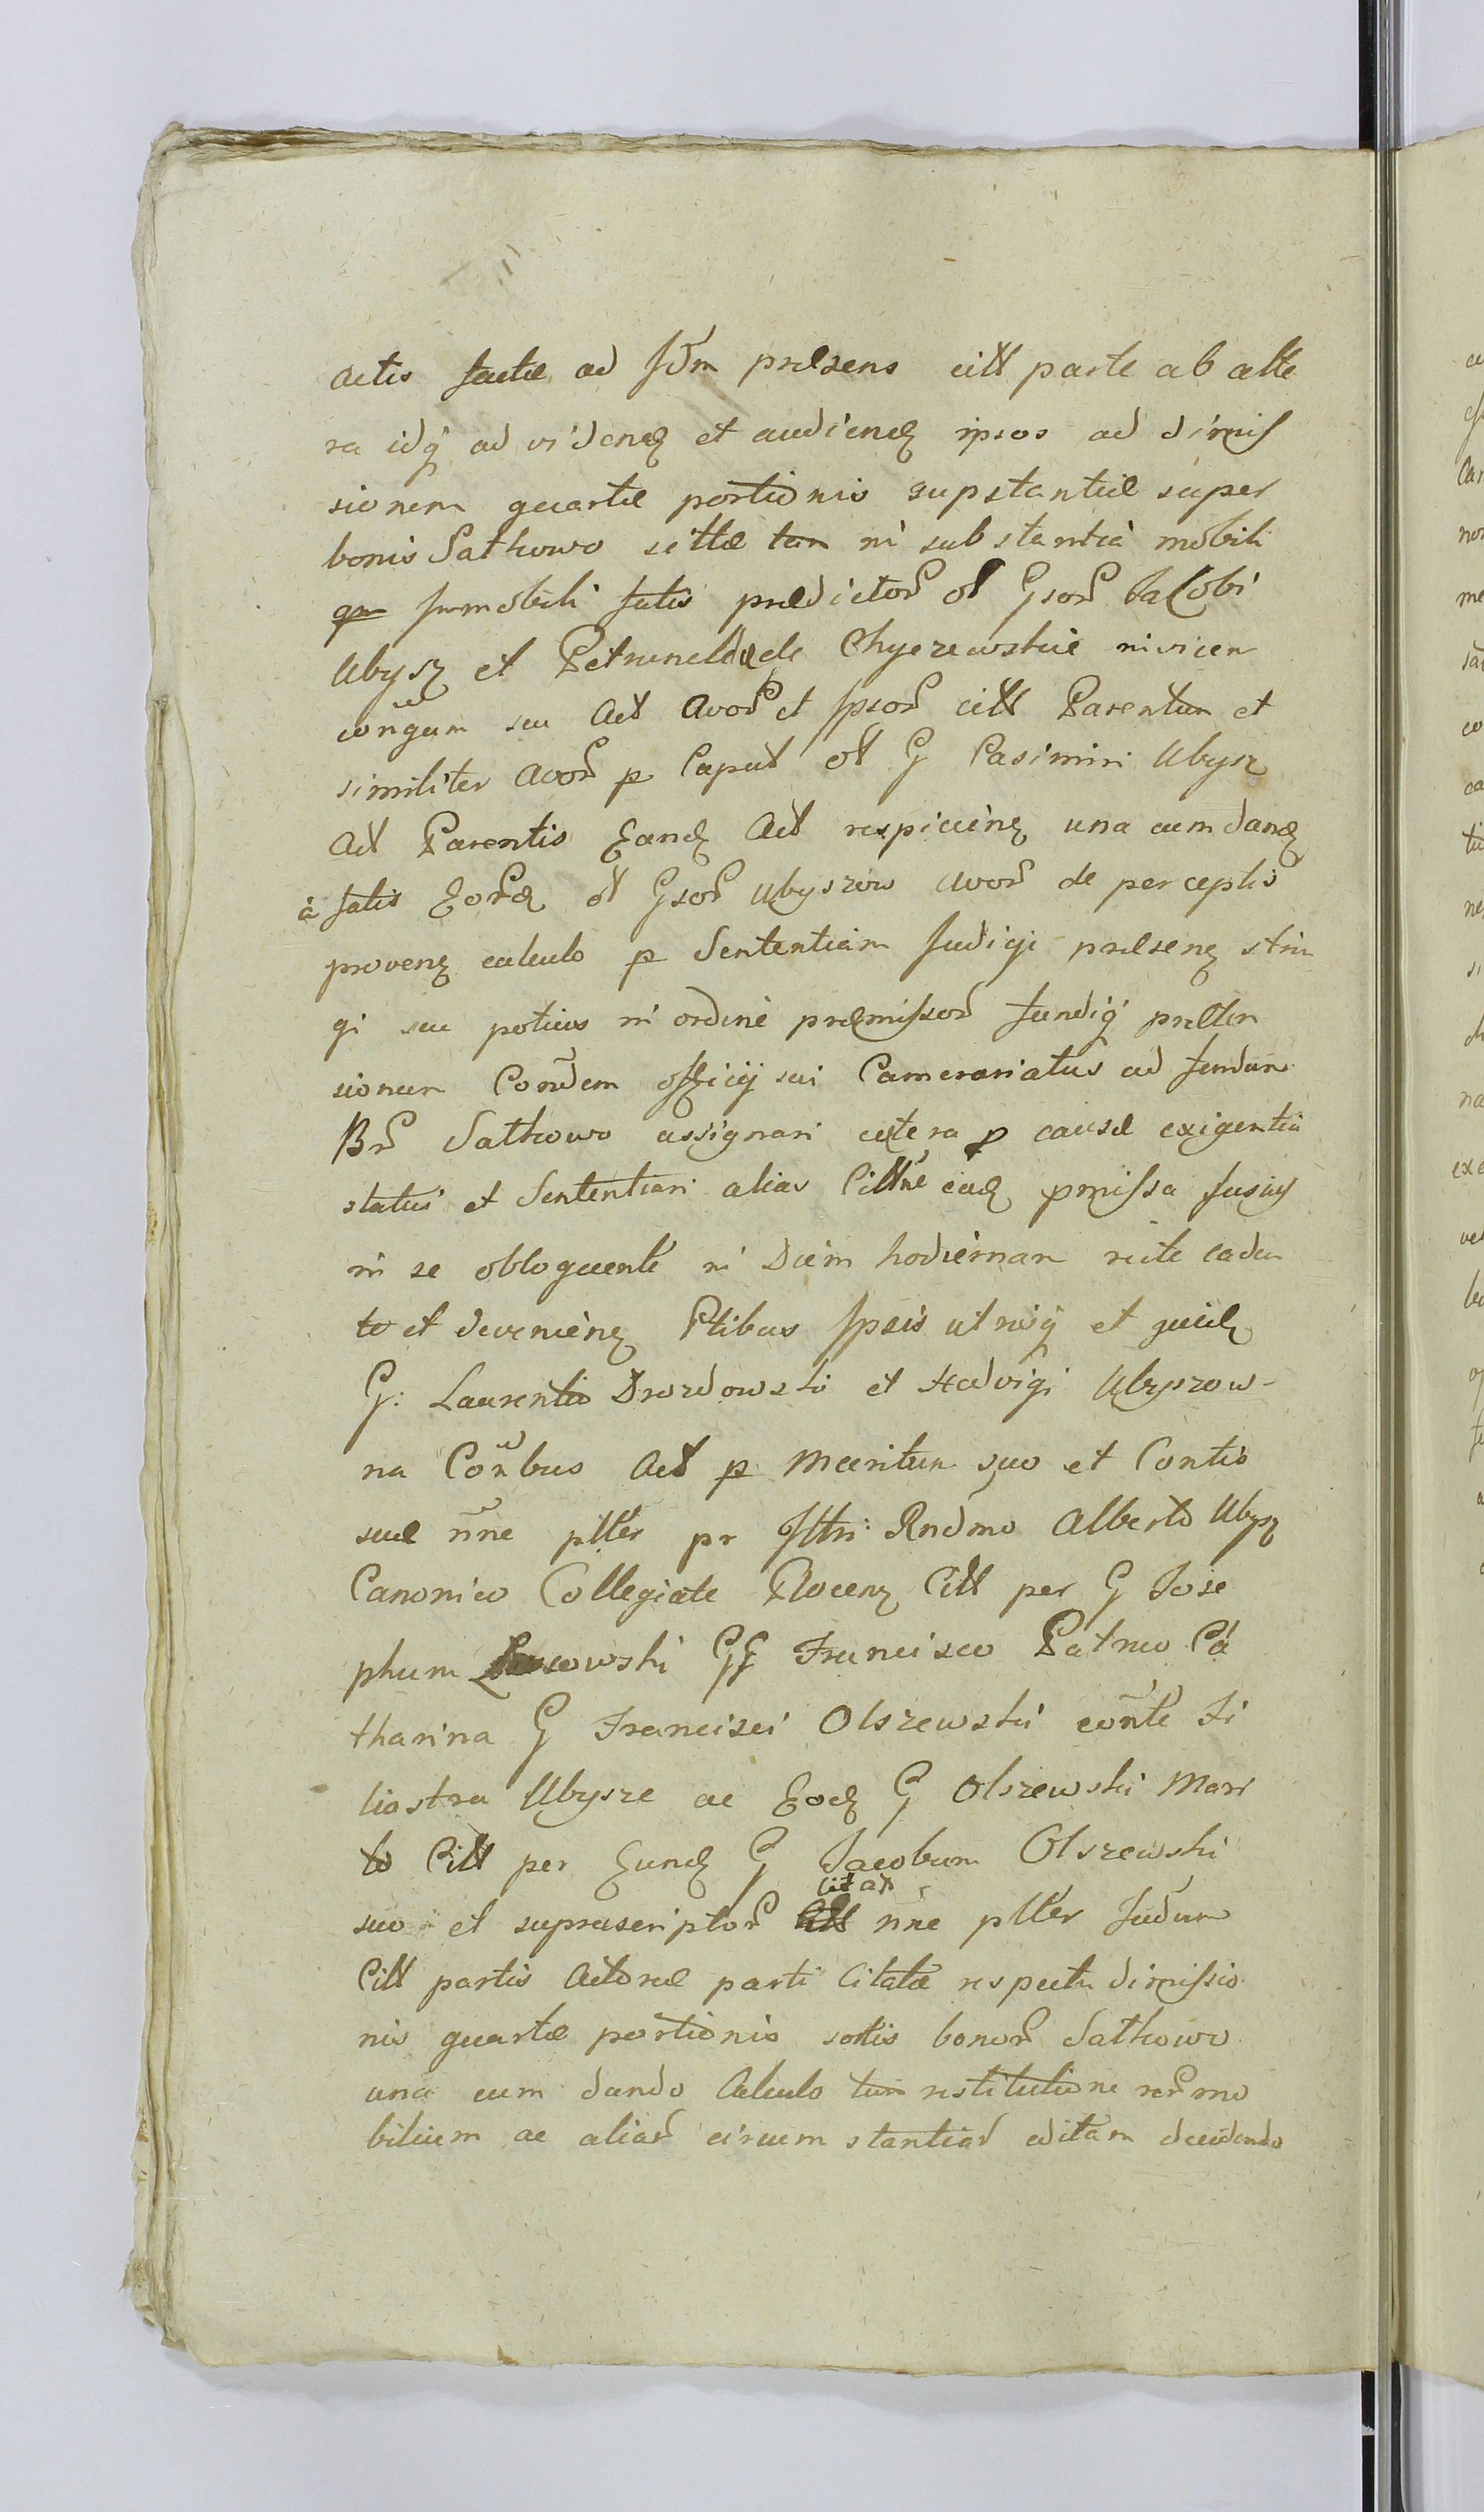 actis factæ ad Jdm præsens citt parte ab alte
ra idq ad videnđ et audienđ ipsos ad dimis
sionem quartæ portionis supstantiæ super
bonis Satkowo sittæ tam in substantia mobili
qm Immobili fatis prædictor ol Gsor Jacobi
Ubysz et Petrunellæ de Chyczewskie invicem
conğum seu Act Avor et Ipsor citt Parentum et
similiter Avor p Caput ol G Casimiri Ubysz
Act Parentis Eand Act respicien una cum dand
à fatis Eord ol Gsor Ubyszow Avor de perceptis
proven calculo p Sententiam Judicÿ præsen strin
gi seu potius in ordine præmissor fundiq præten
sionem Condem officÿ sui Camerariatus ad fundum
Br Satkowo assignari cætera p causæ exigentia
statui et Sententiari alias Cittne ead pmissa fusius
in se obloquente in Diem hodiernam rite caden
te et devenien Ptibus Ipsis utrisq et quid
G: Laurentio Drozdowski et Hedvigi Ubyszow-
na Conbus Act p Maritum suo et Contis
suæ nne ptter pr Jttri: Rndmo Alberto Ubysz
Canonico Collegiate Plocen Citt per G Jose
phum GG Francisco Patruo Ca
tharina G Francisci Olszewski conte Fi
liastra Ubysze ac Eod G Olszewski Mari
to Citt per Eund G Jacobum Olszewski
suo et suprascriptor citat nne ptter Judum
Citt partis Actoreæ parti Citatæ respectu dimissio
nis quartæ portionis sortis bonor Satkowo
una cum dando Calculo tum restitutione rer mo
bilium ac aliar circumstantiar editam decidendo